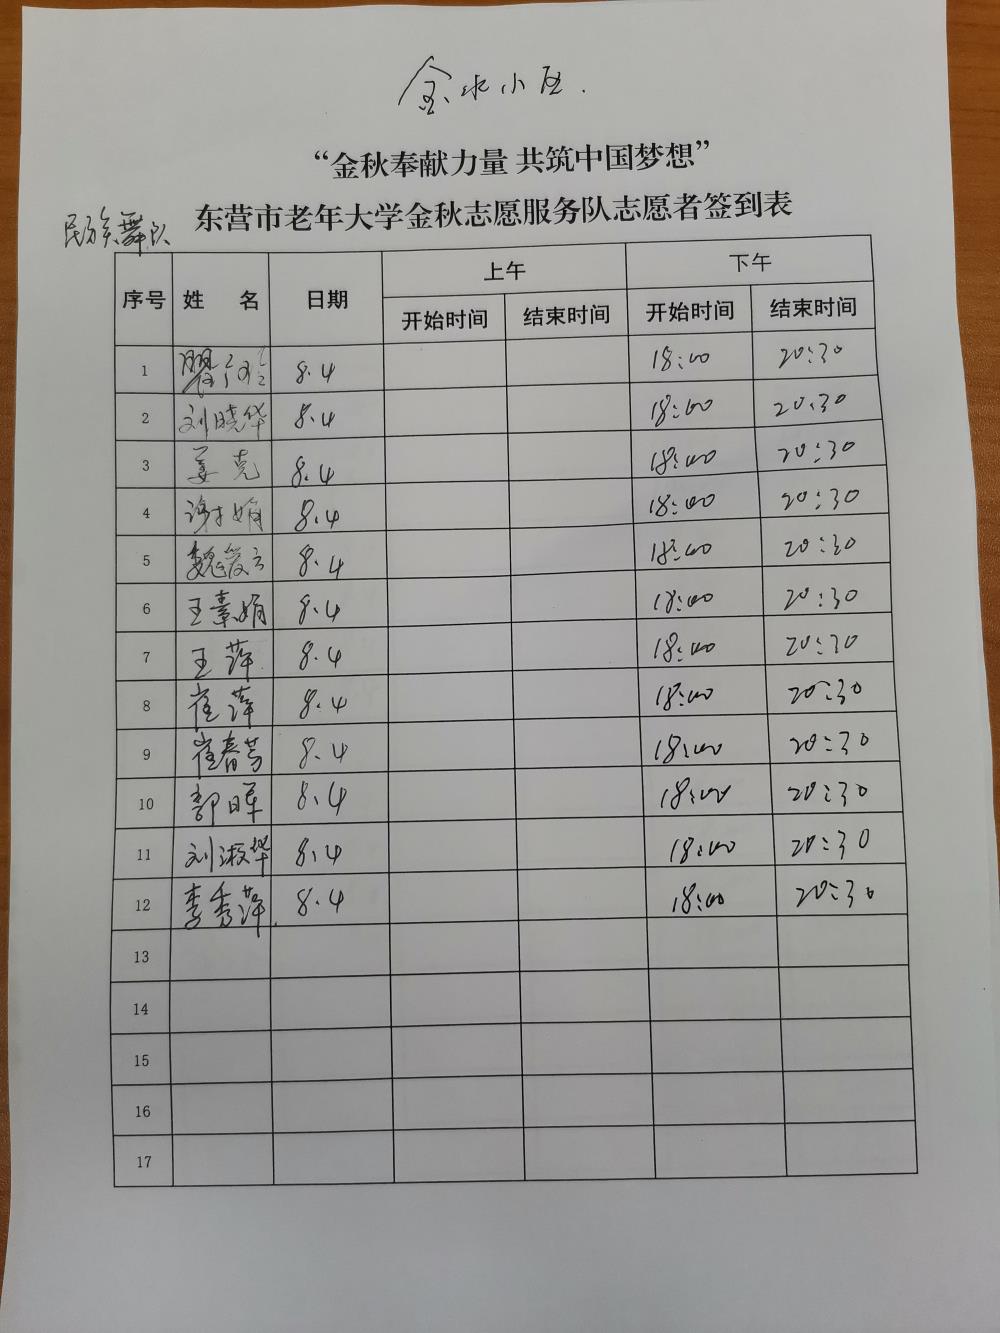 金水小区.
“金秋奉献力量 共筑中国梦想”
东营市老年大学金秋志愿服务队志愿者签到表
民族舞队
序号 姓 名 日期 上午 下午
开始时间 结束时间 开始时间 结束时间
1 8.4 18:00 20:30
2 刘晓华 8.4 18:00 20:30
3 姜克 8.4 18:00 20:30
4 谢娟 8.4 18:00 20:30
5 魏爱云 8.4 18:00 20:30
6 王素娟 8.4 18:00 20:30
7 王萍 8.4 18:00 20:30
8 崔萍 8.4 18:00 20:30
9 崔春芳 8.4 18:00 20:30
10 郭晖 8.4 18:00 20:30
11 刘淑华 8.4 18:00 20:30
12 李秀萍 8.4 18:00 20:30
13
14
15
16
17